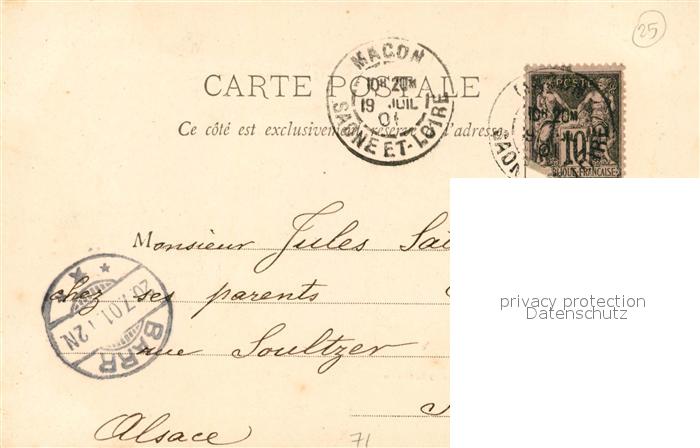 25
MACON
10H 20M
19 JUIL
01
SAONE ET-LOIRE
CARTE POSTALE
Ce côté est exclusivement réservé à l'adresse
POSTE
10
Monsieur Jules
chez ses parents
rue Soultzer
Alsace
71
20.7.01
2N
BARR
privacy protection
Datenschutz